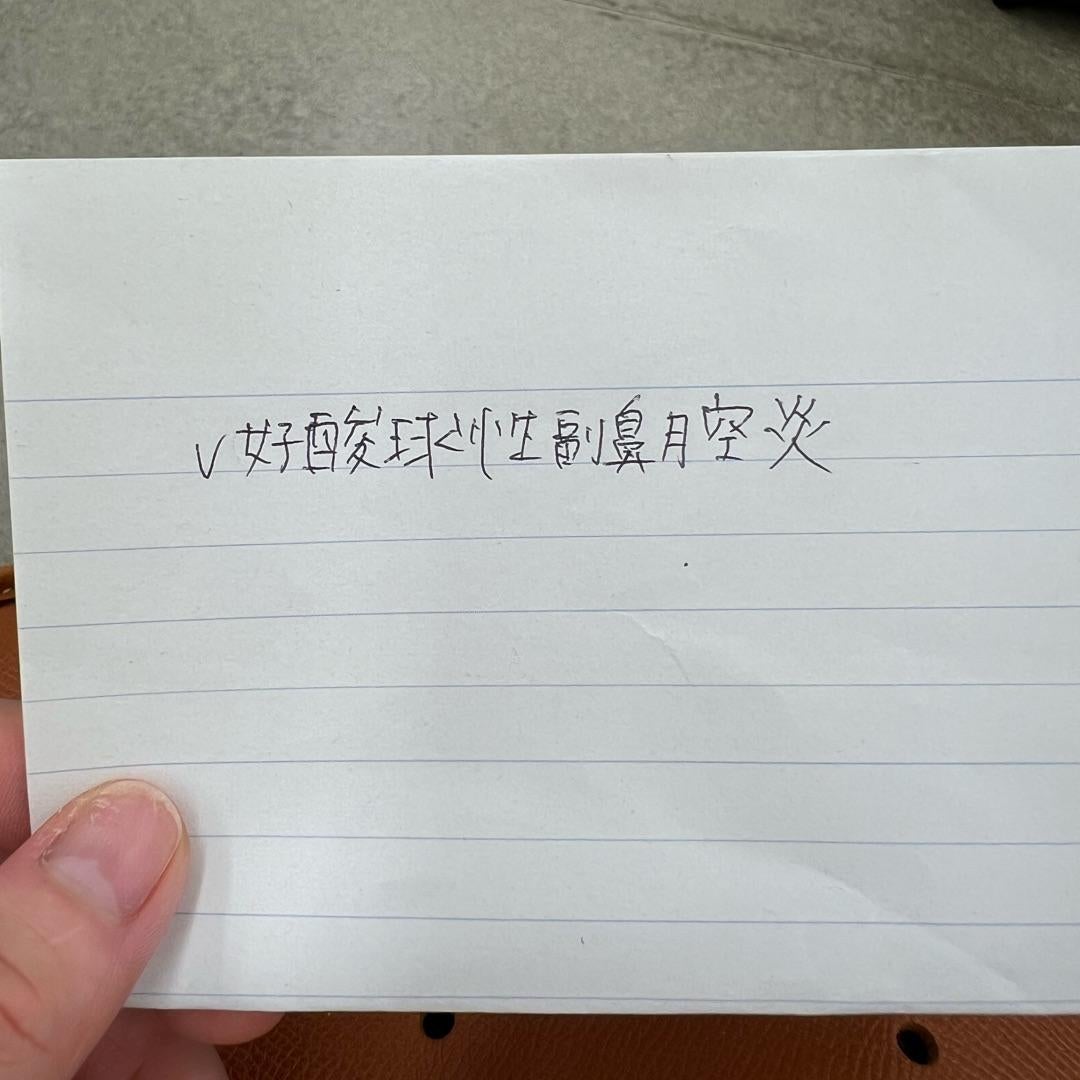 ✓好酸球性副鼻腔炎